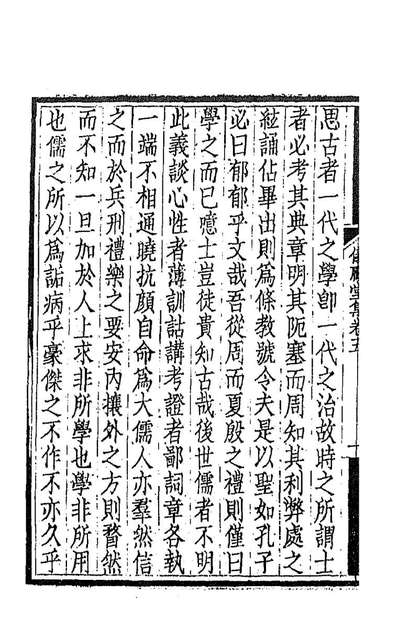 儀顧堂集卷五
思古者一代之學卽一代之治故時之所謂士
者必考其典章明其阨塞而周知其利弊處之
絃誦佔畢出則爲條教號令夫是以聖如孔子
必曰郁郁乎文哉吾從周而夏殷之禮則僅曰
學之而已噫士豈徒貴知古哉後世儒者不明
此義談心性者薄訓詁講考證者鄙詞章各執
一端不相通曉抗顏自命爲大儒人亦羣然信
之而於兵刑禮樂之要安內攘外之方則瞀然
而不知一旦加於人上求非所學也學非所用
也儒之所以爲詬病乎豪傑之不作不亦久乎